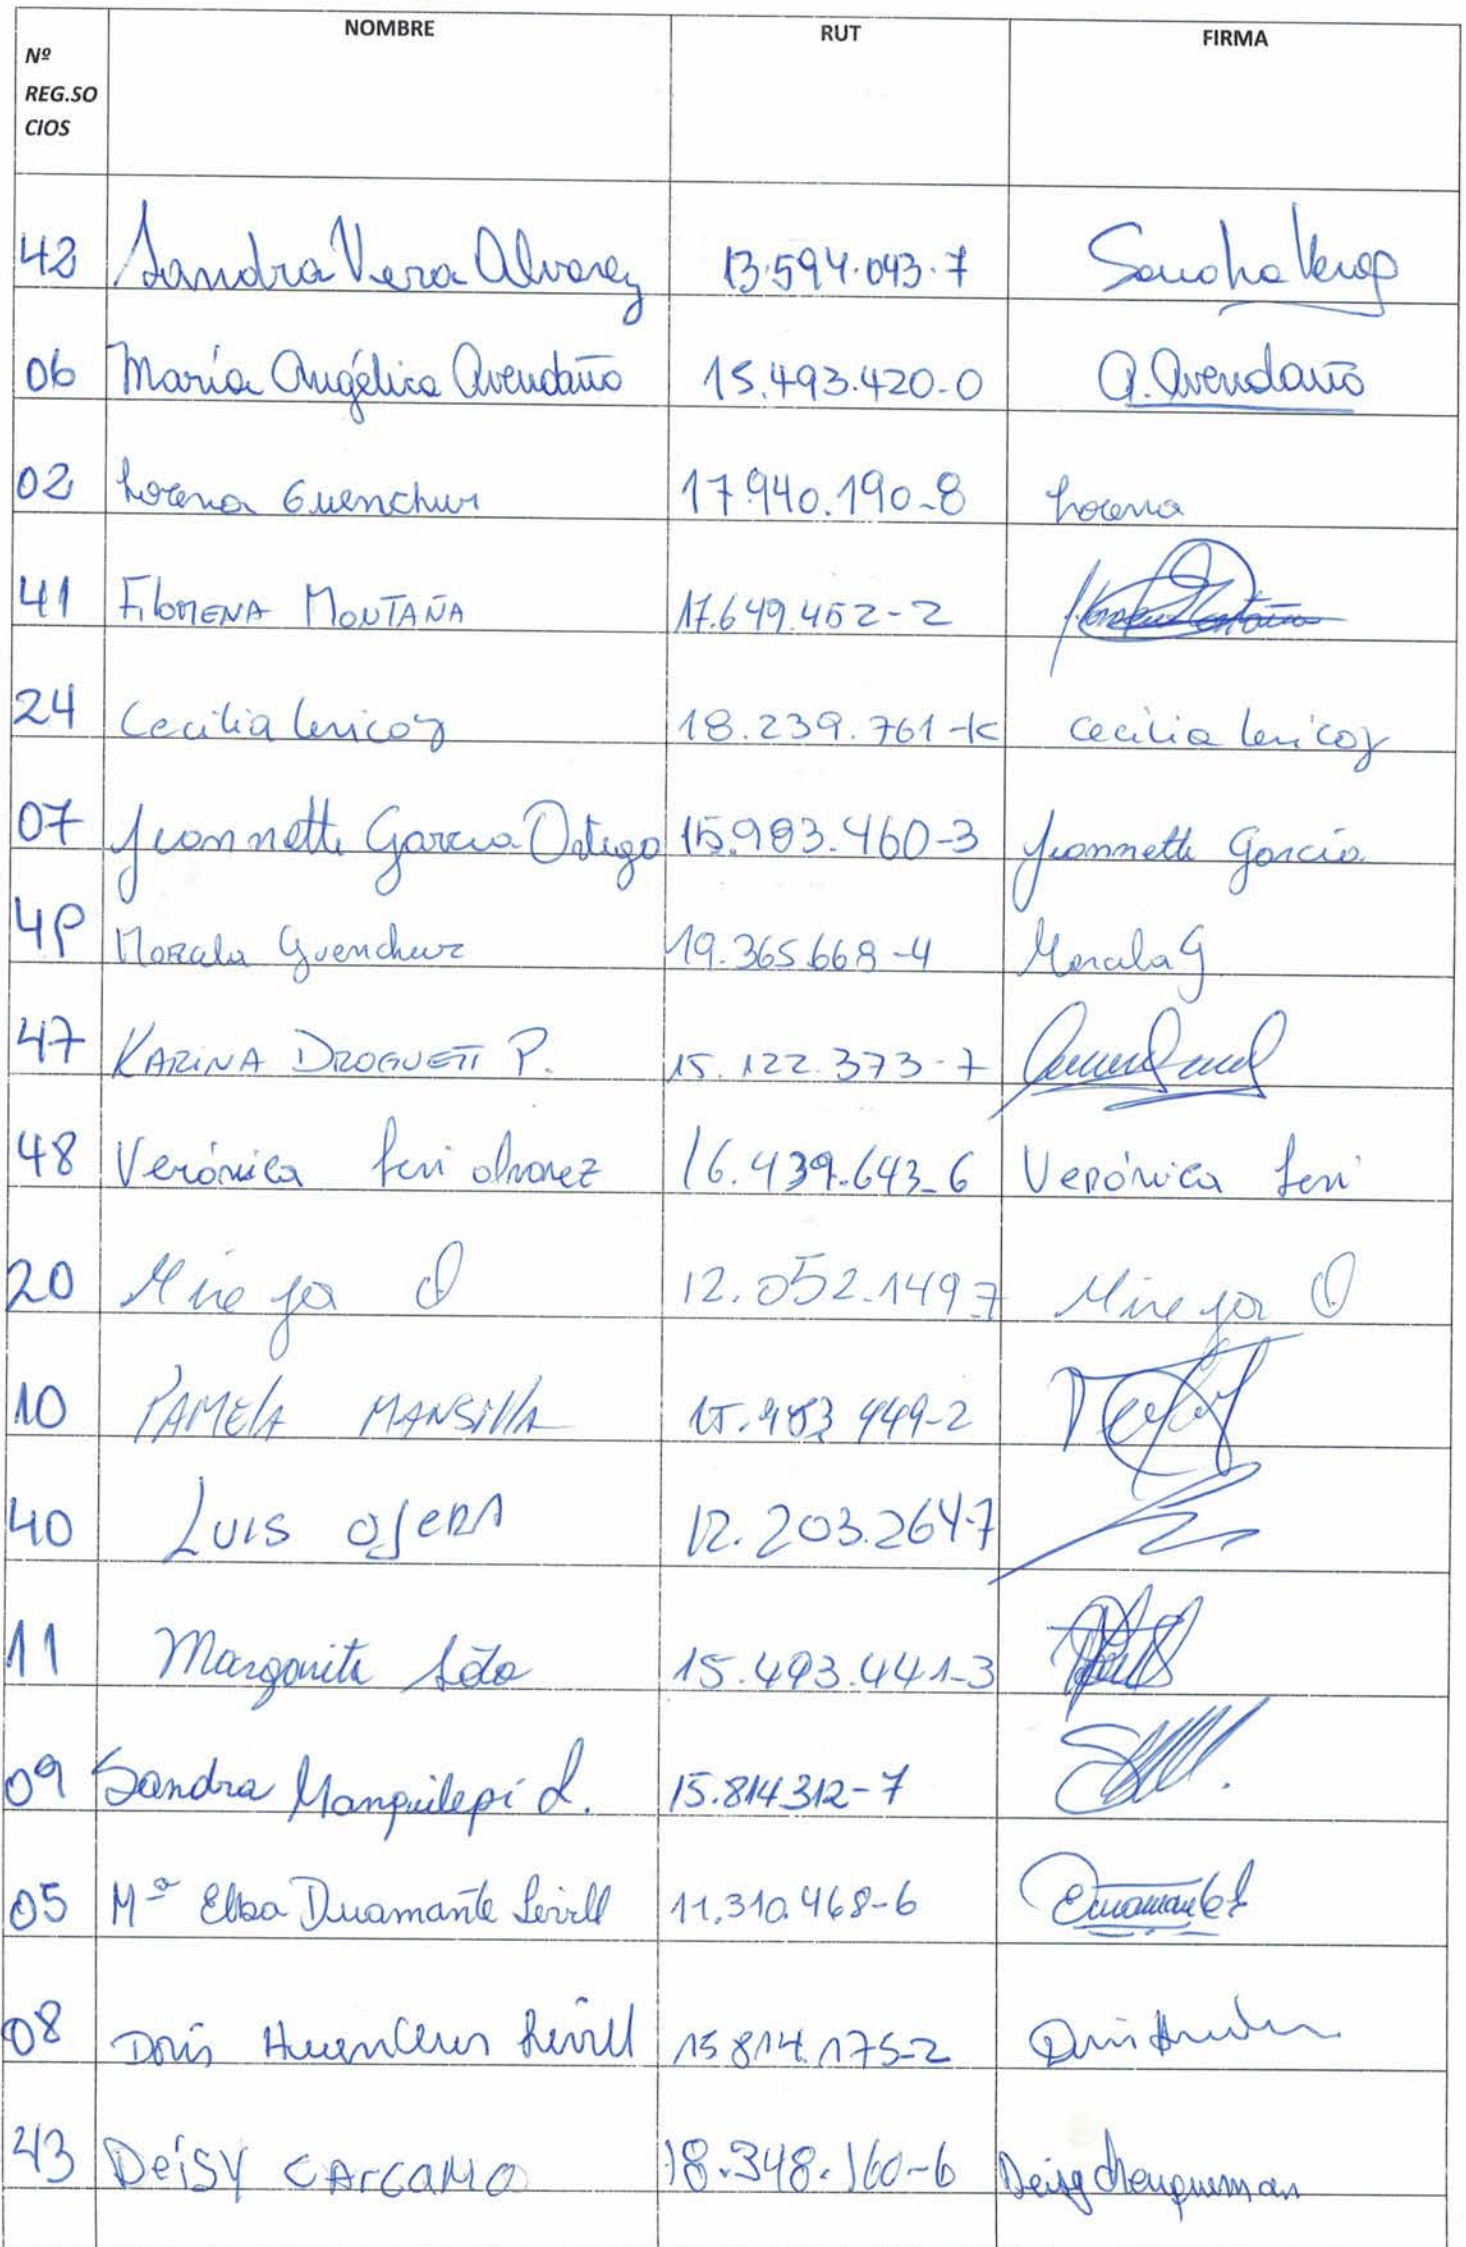 Nº REG.SO CIOS NOMBRE RUT FIRMA
42 Sandra Vera Alvarez 13.594.043-7 Sandra Vera
06 María Angélica Avendaño 15.493.420-0 A. Avendaño
02 Lorena Guenchur 17.940.190-8 Lorena
41 Filomena Montaña 17.649.452-2
24 Cecilia Levicoy 18.239.761-K Cecilia Levicoy
07 Jeannette Garcia Ortega 15.983.460-3 Jeannette García
Guenchur 19.365.668-4
47 KARINA DROGUETT P. 15.122.373-7
48 Verónica Levi Alvarez 16.439.643-6 Verónica Levi
20 Mireya O 12.052.149-7 Mireya O
10 PAMELA MANSILLA
40 LUIS OJEDA 12.203.264-7
11 Margarita Soto 15.493.441-3
09 Sandra Manquilepi L. 15.814.312-7
05 Mª Elba Duamante Levill 11.310.468-6
08 Doris Huenchur Levill 15.814.175-2
43 Deisy CARCAMO 18.348.160-6 Deisy